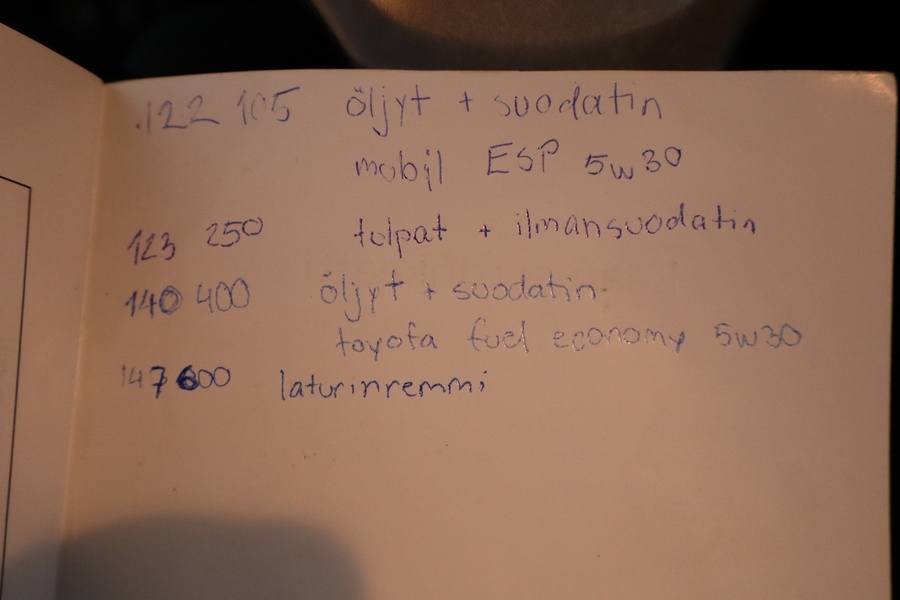 122 105 öljyt + suodatin
mobil ESP 5w30
123 250 tulpat + ilmansuodatin
140 400 öljyt + suodatin
toyota fuel economy 5w30
147 600 laturinremmi